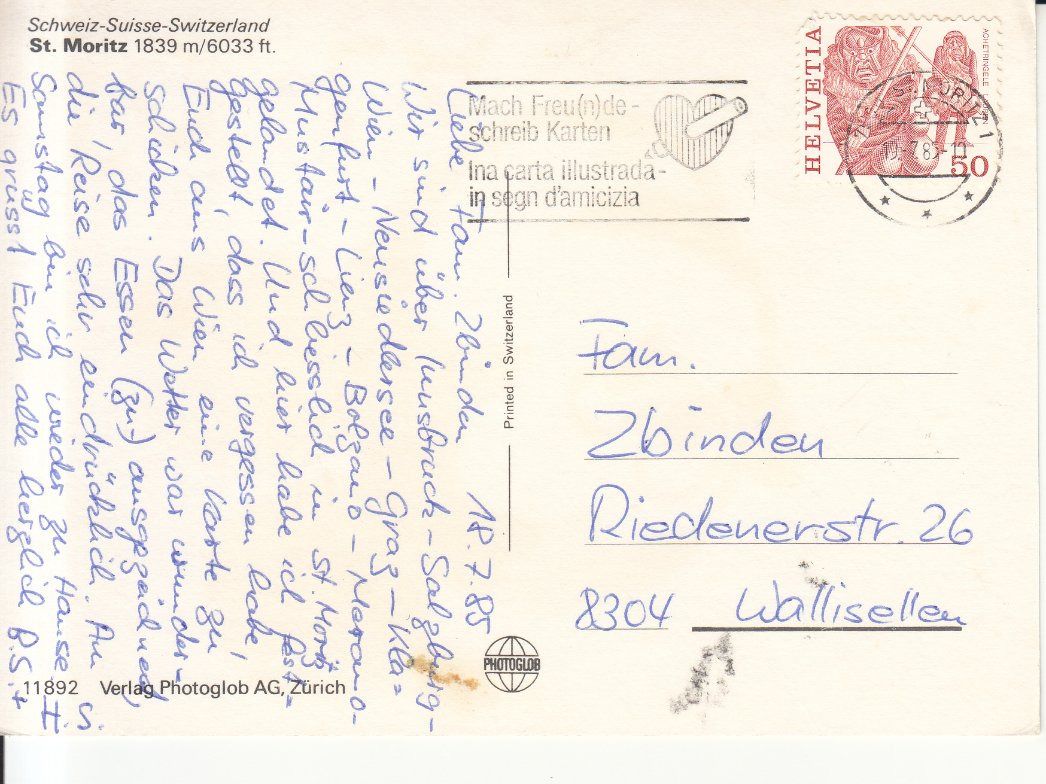 Schweiz-Suisse-Switzerland
St. Moritz 1839 m/6033 ft.
Liebe Fam. Zbinden 18.7.85
Wir sind über Innsbruck-Salzburg-
Wien - Neusiedlersee - Graz - Kla=
genfurt - Lienz - Bolzano - Merano-
Mustair - schliesslich in St. Moritz
gelandet. Und hier habe ich fest=
gestellt, dass ich vergessen habe,
Euch aus Wien eine Karte zu
schicken. Das Wetter war wunder-
bar, das Essen (zu) ausgezeichnet,
die Reise sehr eindrücklich. Am
Samstag bin ich wieder zu Hause.
Es grüsst Euch alle herzlich
11892 Verlag Photoglob AG, Zürich
Printed in Switzerland
PHOTOGLOB
Mach Freu(n)de-
schreib Karten
Ina carta illustrada-
in segn d'amicizia
HELVETIA
ACHETRINGELE LAUPEN
50
ST. MORITZ 1
Fam.
Zbinden
Riedenerstr. 26
8304 Wallisellen